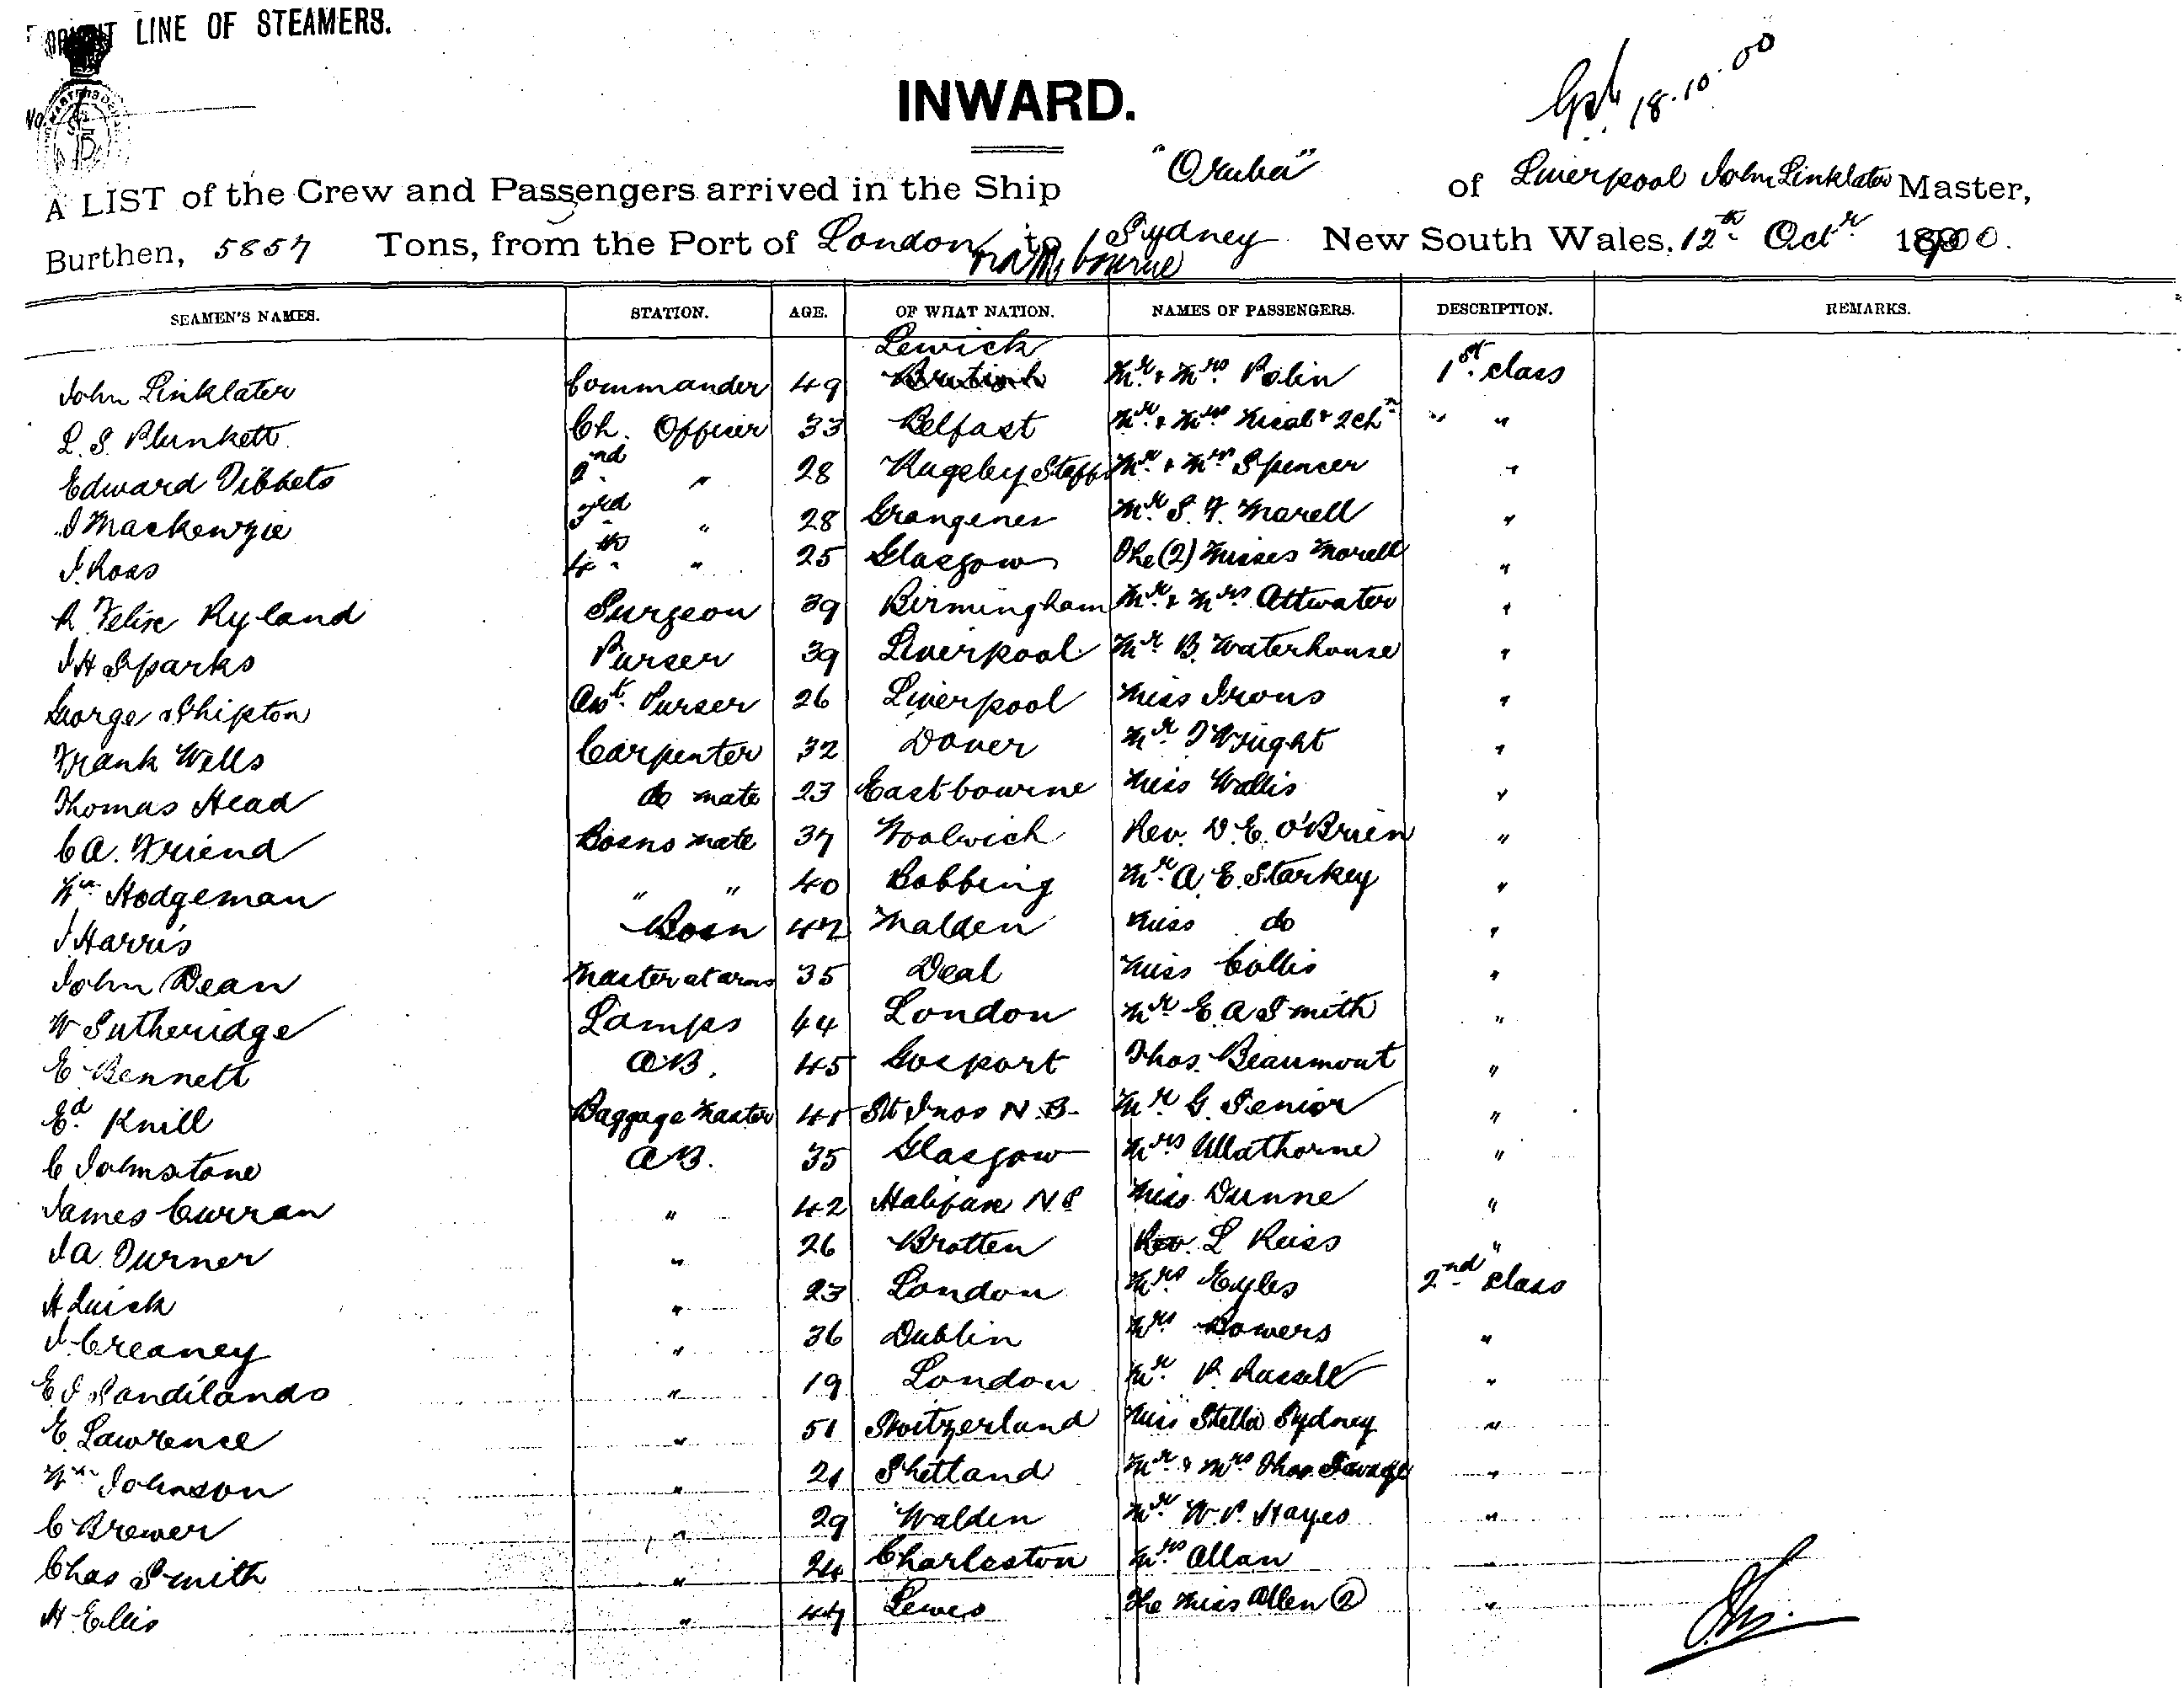 ORIENT LINE OF STEAMERS.
18.10.00
INWARD.
No.
A LIST of the Crew and Passengers arrived in the Ship "Oruba" of Liverpool John Linklater Master,
Burthen, 5857 Tons, from the Port of London to Sydney New South Wales, 12th Octr 1900.
via Melbourne
SEAMEN'S NAMES. STATION. AGE. OF WHAT NATION. NAMES OF PASSENGERS. DESCRIPTION. REMARKS.
Lewick
John Linklater Commander 49 British Mr & Mrs Polin 1st class
L. S. Plunkett Ch. Officer 33 Belfast Mr & Mrs & 2 chn " "
Edward Tibbets 2nd " 28 Rugeley Staffs Mr & Mrs Spencer "
J Mackenzie 3rd " 28 Mr S. F. Marell "
J. Ross 4th " 25 Glasgow The (2) Misses Morell "
R Felix Ryland Surgeon 39 Birmingham Mr & Mrs Attwater "
J H Sparks Purser 39 Liverpool Mr B. Waterhouse "
George Shipton Asst. Purser 26 Liverpool Miss Irons "
Frank Wells Carpenter 32 Dover Mr J Wright "
Thomas Head do mate 23 Eastbourne Miss Wallis "
C A. Friend Bosns mate 37 Woolwich Rev. D. E. O'Brien "
Wm Hodgeman " " 40 Bobbing Mr A. E. Starkey "
J Harris Bosn 42 Malden Miss do "
John Dean Master at arms 35 Deal Miss Collis "
W Sutheridge Lamps 44 London Mr E. A Smith "
E Bennett AB. 45 Gosport Thos. Beaumont "
Ed Knill Baggage Master 41 N. B. Mr G. Senior "
C Johnstone AB. 35 Glasgow Mrs Ullathorne "
James Curran " 42 Halifax N S Miss Dunne "
J A. Turner " 26 Brotten Rev. L Reiss "
H Quick " 23 London Mrs Eyles 2nd class
J Creaney " 36 Dublin Mrs Bowers "
E J Sandilands " 19 London Mr P. Russell "
E. Lawrence " 51 Switzerland Miss Stella Sydney "
Wm Johnson " 21 Shetland Mr & Mrs Thos Savage "
C Brewer " 29 Walden Mr W. P. Hayes "
Chas Smith " 24 Charleston Mrs Allan "
H Ellis " 47 Lewes The Miss Allen 2 "